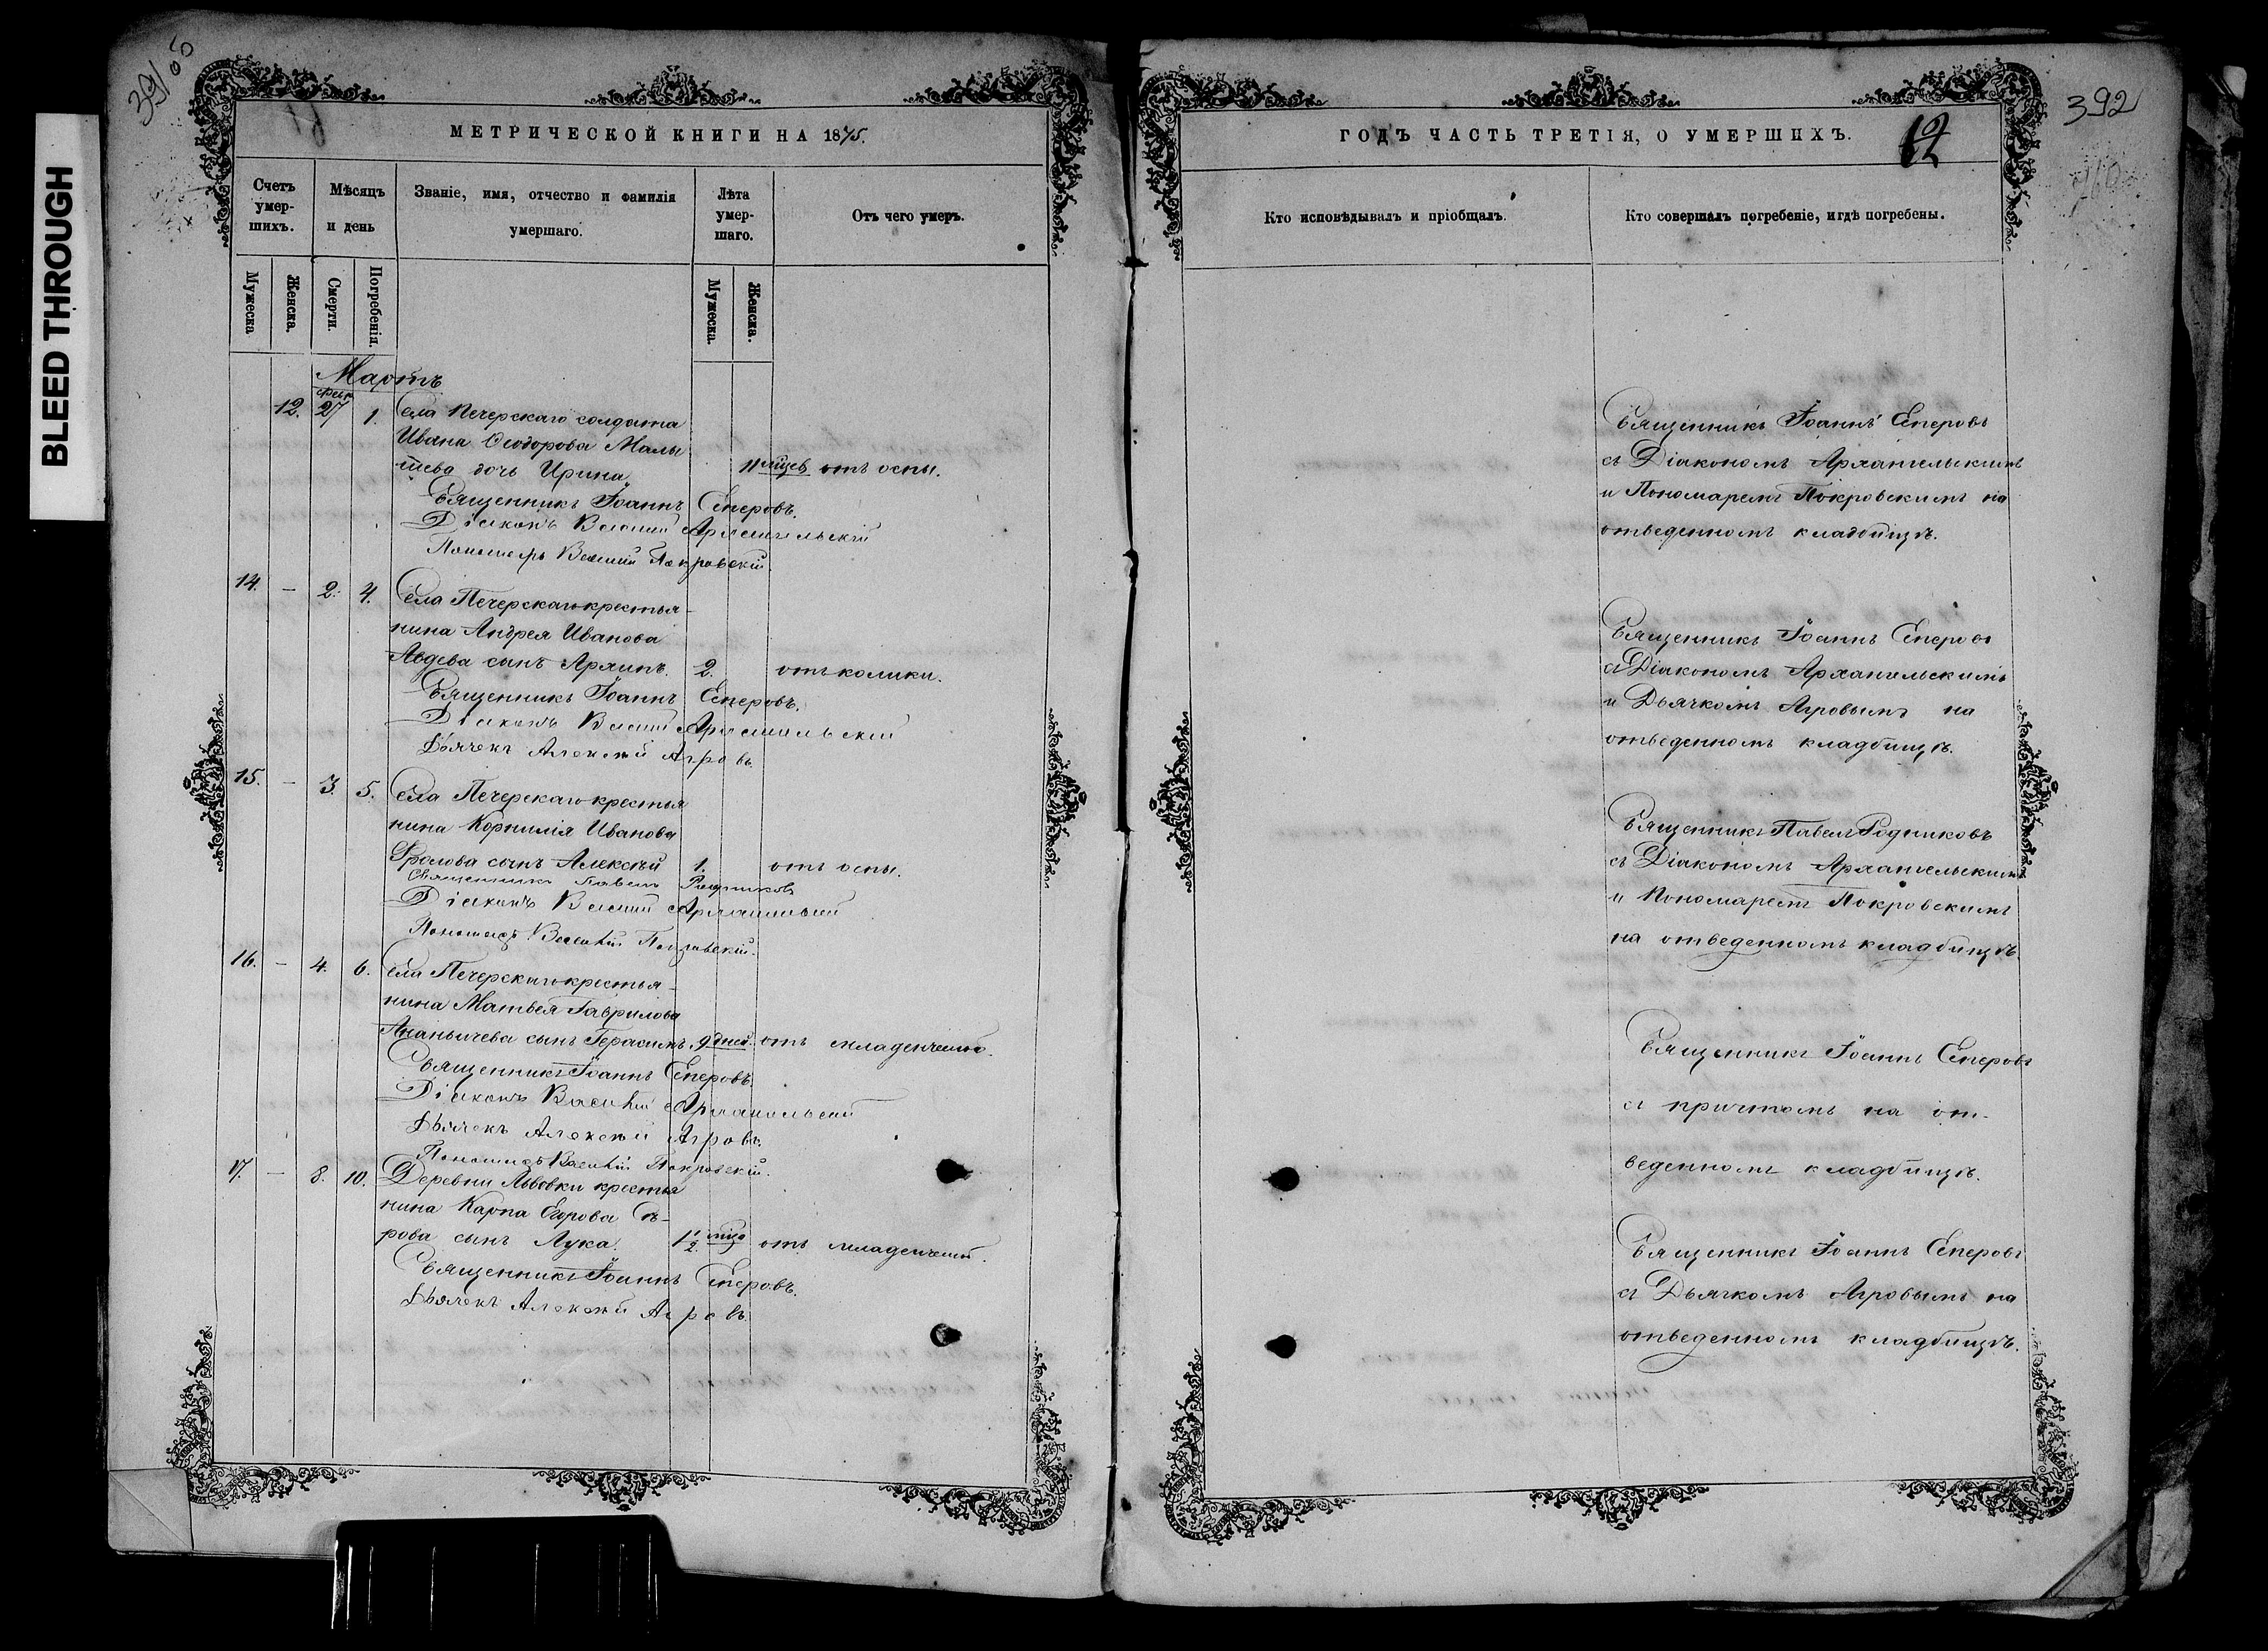 BLEED THROUGH
391
МЕТРИЧЕСКОЙ КНИГИ НА 1875.
Счетъ умер-шихъ.
Мѣсяцъ и день
Званіе, имя, отчество и фамилія умершаго.
Лѣта умер-шаго.
Отъ чего умеръ.
Мужеска
Женска.
Смерти.
Погребенія.
Мужеска.
Женска.
Мартъ
Февр.
12. 27 1. Села Печерскаго солдата
Ивана Ѳеодорова Малы
шева дочь Ирина. 11 мцев отъ оспы.
Священникъ Іоаннъ Сперовъ.
Діаконъ Василій Архангельскій
Пономарь Василій Покровскій.
14. — 2. 4. Села Печерскаго крестья-
нина Андрея Иванова
Авдева сынъ Архипъ. 2. отъ колики.
Священникъ Іоаннъ Сперовъ.
Діаконъ Василій Архангельскій
Дьячекъ Алексѣй Агровъ
15. — 3. 5. Села Печерскаго крестья
нина Корнилія Иванова
Фролова сынъ Алексѣй 1. отъ оспы.
Священникъ Павелъ Родниковъ
Діаконъ Василій Архангельскій
Пономарь Василій Покровскій.
16. — 4. 6. Села Печерскаго крестья-
нина Матвея Гаврилова
Ананьичева сынъ Герасимъ. 9 дней. отъ младенческой.
Священникъ Іоаннъ Сперовъ.
Діаконъ Василій Архангельскій
Дьячекъ Алексѣй Агровъ.
Пономарь Василій Покровскій.
17. — 8. 10. Деревни Львовки крестья
нина Карпа Егорова Сѣ-
рова сынъ Лука. 1 1/2 отъ младенческой.
Священникъ Іоаннъ Сперовъ.
Дьячекъ Алексѣй Агровъ.
392
ГОДЪ ЧАСТЬ ТРЕТІЯ, О УМЕРШИХЪ.
12
Кто исповѣдывалъ и пріобщалъ.
Кто совершалъ погребеніе, и гдѣ погребены.
Священникъ Іоаннъ Сперовъ
съ Діакономъ Архангельскимъ
и Пономаремъ Покровскимъ на
отведенномъ кладбищѣ.
Священникъ Іоаннъ Сперовъ
съ Діакономъ Архангельскимъ
и Дьячкомъ Агровымъ на
отведенномъ кладбищѣ.
Священникъ Павелъ Родниковъ
съ Діакономъ Архангельскимъ
и Пономаремъ Покровскимъ
на отведенномъ кладбищѣ.
Священникъ Іоаннъ Сперовъ
съ причтомъ на от-
веденномъ кладбищѣ.
Священникъ Іоаннъ Сперовъ
съ Дьячкомъ Агровымъ на
отведенномъ кладбищѣ.